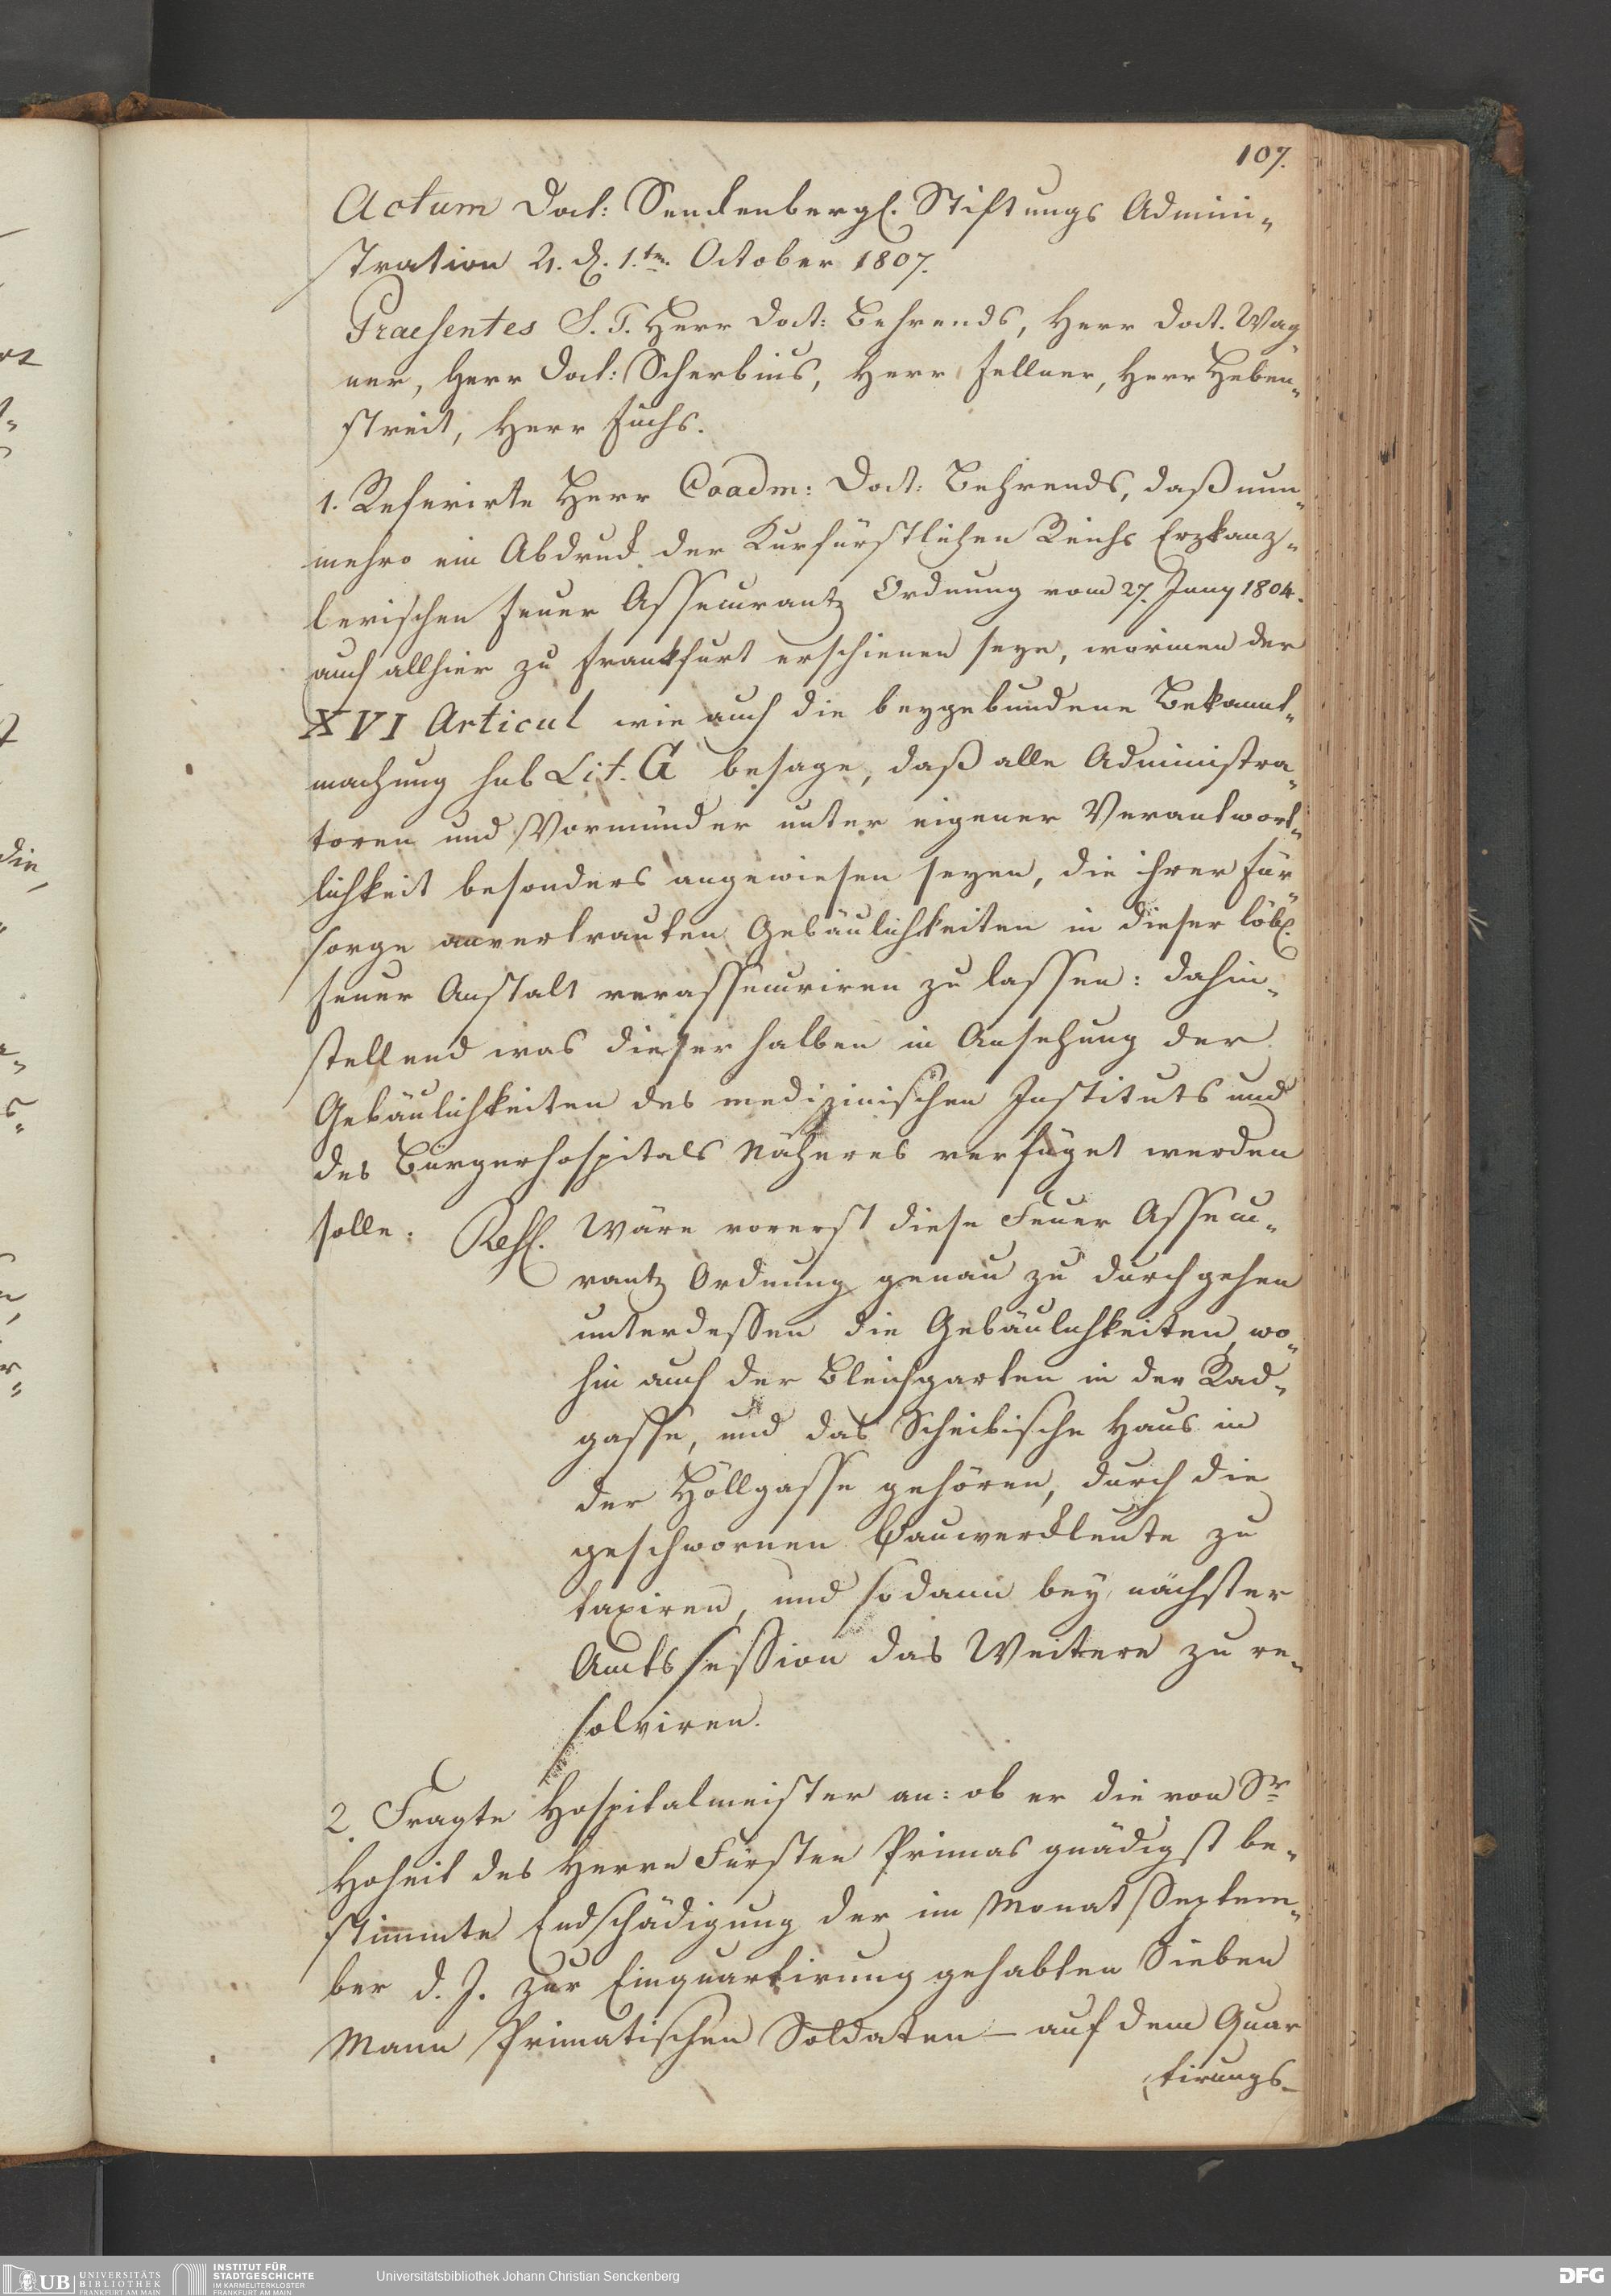 107.
Actum Doct: Senckenbergl. Stiftungs Admini„
stration 4. d. 1.ten October 1807.
Praesentes S. T. Herr Doct: Behrends, Herr Doct. Wag„
ner, Herr Doct: Scherbius, Herr Fellner, Herr Heben„
streit, Herr Fuchs.
1. Referirte Herr Coadm: Doct: Behrends, daß nun„
mehro ein Abdruck der Kurfürstlichen Reichs Erzkanz„
lerischen Feuer Assecurantz Ordnung vom 27. Juny 1804.
auch allhier zu Frankfurt erschienen seye, worinnen der
XVI Articul wie auch die beygebundene Bekannt„
machung sub Lit. G besage, daß alle Administra„
toren und Vormünder unter eigener Verantwort„
lichkeit besonders angewiesen seyen, die ihrer Für„
sorge anvertrauten Gebäulichkeiten in dieser löbl.
Feuer Anstalt verassecuriren zu lassen: dahin„
stellend was dieser halben in Ansehung der
Gebäulichkeiten des medizinischen Instituts und
des Bürgerhospitals Näheres verfüget werden
solle. Resl. Wäre vorerst diese Feuer Assecu„
rantz Ordnung genau zu durchgehen
unterdessen die Gebäulichkeiten, wo„
hin auch der Bleichgarten in der Rad„
gasse, und das Scheibische Haus in
der Höllgasse gehören, durch die
geschwornen Bauwerckleute zu
taxiren, und sodann bey nächster
Amts session das Weitere zu re„
solviren.
2. Fragte Hospitalmeister an: ob er die von Sr
Hoheit des Herrn Fürsten Primas gnädigst be„
stimmte Endschädigung der im Monat Septem„
ber d. J. zur Einquartirung gehabten Sieben
Mann Primatischen Soldaten – auf dem Quar
tirungs–
die
UB UNIVERSITÄTS
BIBLIOTHEK
FRANKFURT AM MAIN
INSTITUT FÜR
STADTGESCHICHTE
IM KARMELITERKLOSTER
FRANKFURT AM MAIN
Universitätsbibliothek Johann Christian Senckenberg
DFG